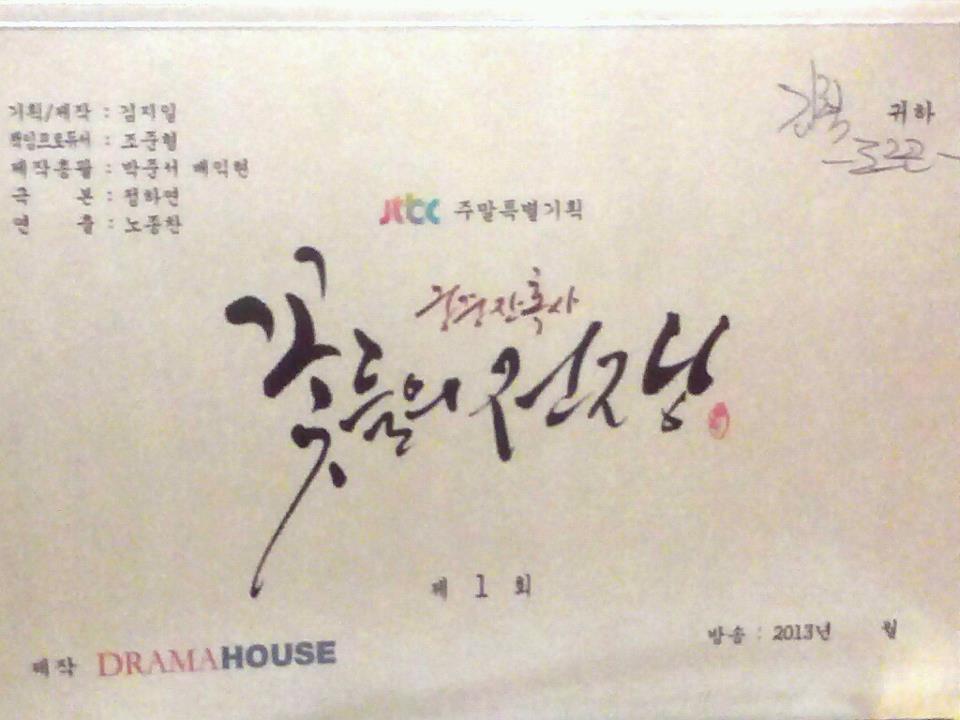 기획/제작 : 김지일
책임프로듀서 : 조준형
제작총괄 : 박준서 배익현
극 본 : 정하연
연 출 : 노종찬
귀하
jtbc 주말특별기획
궁중잔혹사
꽃들의 전쟁
제 1 회
방송 : 2013년 월
제작 DRAMAHOUSE